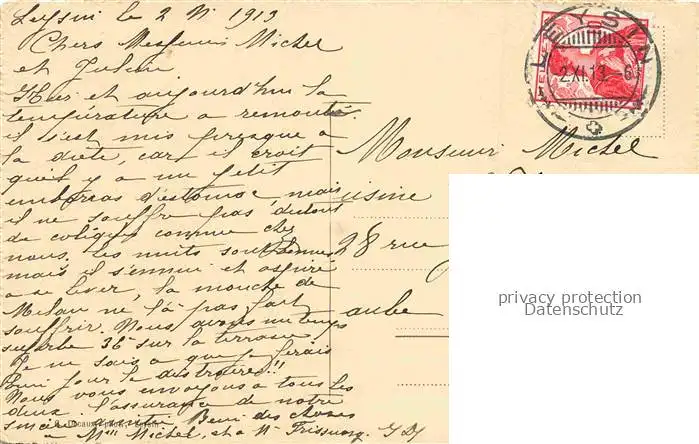 Leysin le 2 XI 1913
Chers Messieurs Michel
et Julien
Hier et aujourd'hui la
température a remonté.
il s'est mis presque à
la diète, car il croit
qu'il y a un petit
embarras d'estomac mais
il ne souffre pas du tout
de coliques comme chez
nous. Les nuits sont bonnes
mais il s'ennuie et aspire
a se lever, la mouche de
Milan ne l'a pas fait
souffrir. Nous avons un temps
superbe 36° sur la terrasse
Je ne sais a que je ferais
pour le distraire!!
Nous vous envoyons a tous les
deux l'assurance de notre
sincère amitié. Bien des choses
a Mme Michel, et a Mr
LEYSIN
2.XI.13.-6
HELVETIA
Monsieur Michel
usine
28 rue
aube
privacy protection
Datenschutz